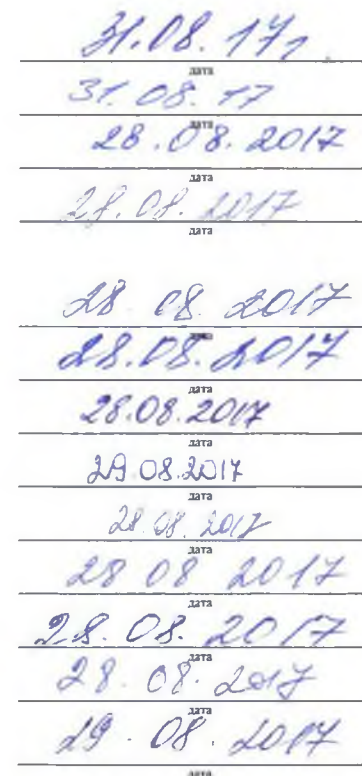 31.08.17г
дата
31.08.17
дата
28.08.2017
дата
28.08.2017
дата
28.08.2017
28.08.2017
дата
28.08.2017
дата
29.08.2017
дата
28.08.2017
дата
28 08 2017
дата
28.08.2017
28.08.2017
дата
29.08.2017
дата